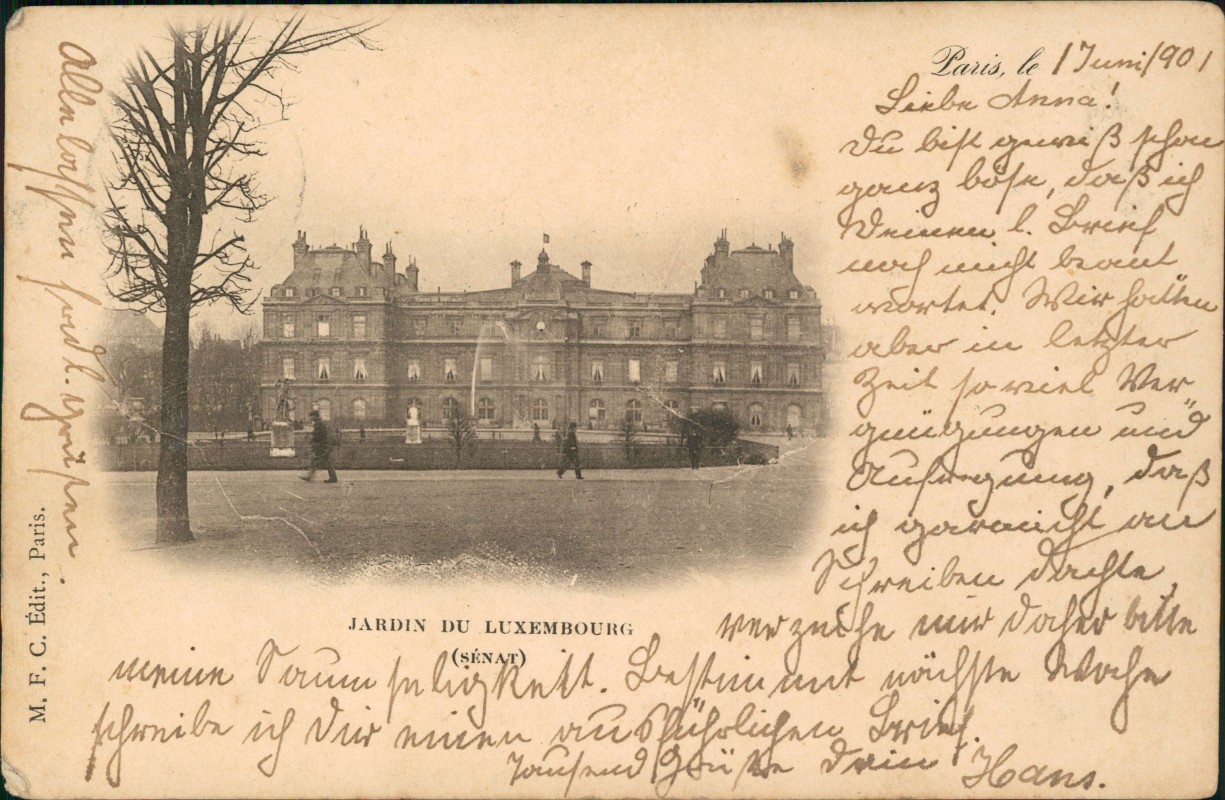 Paris, le 1 Juni 1901
Liebe Anna!
Du bist gewiß schon
ganz böse, daß ich
Deinen l. Brief
noch nicht beant
wortet. Wir hatten
aber in letzter
Zeit so viel Ver
gnügungen und
Aufregung, daß
ich garnicht an
Schreiben dachte,
verzeihe mir daher bitte
meine Saumseligkeit. Bestimmt nächste Woche
schreibe ich Dir einen ausführlichen Brief.
Tausend Grüße Dein Hans.
Alle lassen herzl. grüßen.
JARDIN DU LUXEMBOURG
(SÉNAT)
M. F. C. Édit., Paris.